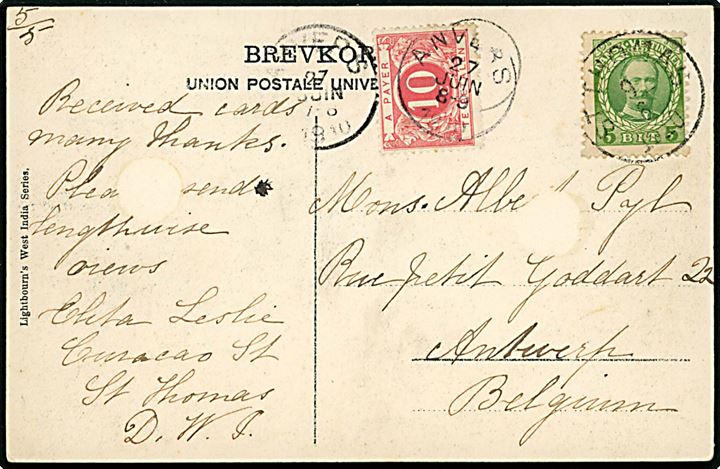 5/5
BREVKOR
UNION POSTALE UNIVE
Received cards
many thanks.
Plea send
lengthwise
views
Elita Leslie
Curacao St
St Thomas
D. W. I.
Lightbourn's West India Series.
A PAYER
10
TE
ANVERS
27
JUIN
1910
ANVERS
27
JUIN
5 BIT 5
Mons. Albe t Pyl
Rue petit Goddart 22
Antwerp
Belgium